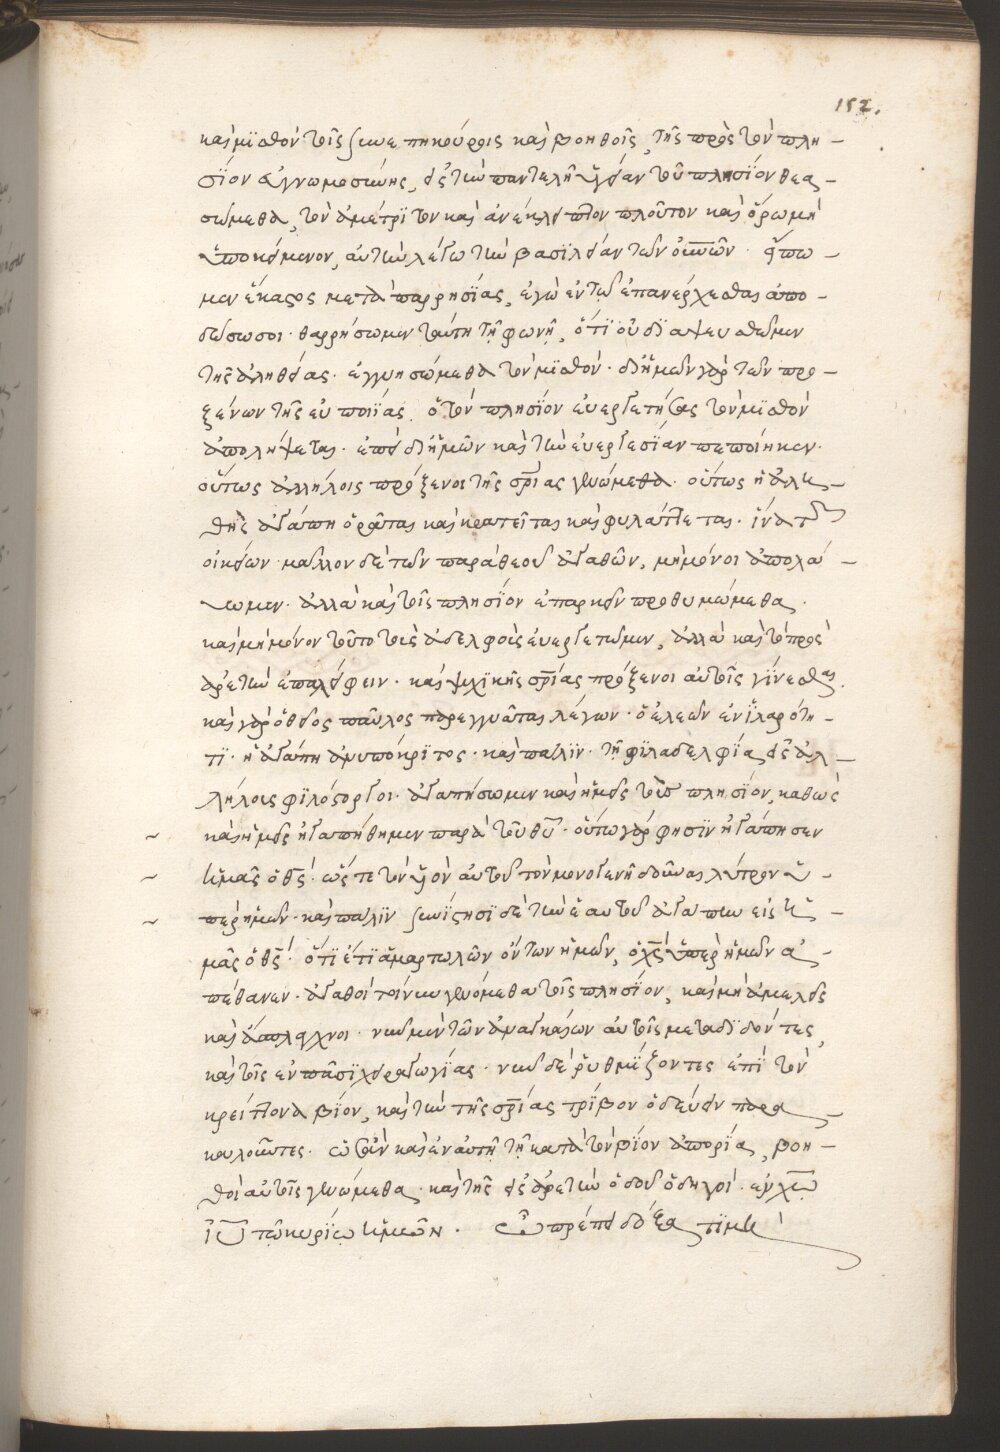 152.
καὶ μϊσθὸν τοῖς συνεπικούροις καὶ βοηθοῖς, τῆς πρὸς τὸν πλη-
σίον εὐγνωμοσύνης, εἰς τὴν παντελῆ ὑγείαν τοῦ πλησίον θεα-
σώμεθα, τὸν ἀμέτρϊτον καὶ ἀνέκλειπτον πλοῦτον καὶ ὅρω μὴ
ὑποκείμενον, αὐτὴν λέγω τὴν βασϊλείαν τῶν οὐνῶν. εἴπω-
μεν ἕκαστος μετὰ παρρησίας, ἐγὼ ἐν τῷ ἐπανέρχεσθαι ἀπο-
δώσω σοι. θαρρήσωμεν ταύτη τῇ φωνῇ, ὅτϊ οὐ δϊαψευσθῶμεν
τῆς ἀληθείας. ἐγγυησώμεθα τὸν μϊσθόν. δι' ἡμῶν γὰρ τῶν προ-
ξένων τῆς εὐποιΐας, ὁ τὸν πλησίον εὐεργετήσας τὸν μϊσθὸν
ἀπολήψεται. ἐπεὶ δι' ἡμῶν καὶ τὴν εὐεργεσίαν πεποίηκεν.
οὕτως ἀλλήλοις πρόξενοι τῆς σρίας γινώμεθα. οὕτως ἡ ἀλη-
θὴς ἀγάπη ὁρᾶται καὶ κρατεῖται καὶ φυλάττεται. ἵνα τῶν
οἰκείων μᾶλλον δὲ τῶν παρὰ θεοῦ ἀγαθῶν, μὴ μόνοι ἀπολαύ-
ωμεν. ἀλλὰ καὶ τοῖς πλησίον ἐπαρκεῖν προθυμώμεθα.
καὶ μὴ μόνον τοῦτο τοὺς ἀδελφοὺς εὐεργετῶμεν, ἀλλὰ καὶ τὸ πρὸς
ἀρετὴν ἐπαλείφειν. καὶ ψυχϊκῆς σρίας πρόξενοι αὐτοῖς γίνεσθαι.
καὶ γὰρ ὁ θεῖος παῦλος παρεγγυᾶται λέγων. ὁ ἐλεῶν ἐν ἱλαρότη-
τϊ. ἡ ἀγάπη ἀνυπόκρϊτος. καὶ πάλϊν. τῇ φϊλαδελφίᾳ εἰς ἀλ-
λήλους φϊλόστοργοι. ἀγαπήσωμεν καὶ ἡμεῖς τοὺς πλησίον, καθὼς
καὶ ἡμεῖς ἠγαπήθημεν παρὰ τοῦ θυ. οὕτω γὰρ φησὶν ἠγάπησεν
ἡμᾶς ὁ θς. ὥστε τὸν υἱὸν αὐτοῦ τὸν μονογενῆ δοῦναι λύτρον ὑ-
πὲρ ἡμῶν. καὶ πάλϊν συνίστησϊ δὲ τὴν ἑαυτοῦ ἀγάπην εἰς ἡ-
μᾶς ὁ θς. ὅτϊ ἔτϊ ἁμαρτωλῶν ὄντων ἡμῶν, ὁ χς ὑπὲρ ἡμῶν ἀ-
πέθανεν. ἀγαθοὶ τοίνυν γινόμεθα τοῖς πλησίον, καὶ μὴ ἀμελεῖς
καὶ ἄσπλαγχνοι. νῦν μὲν τῶν ἀναγκαίων αὐτοῖς μεταδϊδόντες,
καὶ τοῖς ἐν πᾶσϊ χειραγωγίας. νῦν δὲ ῥυθμΐζοντες ἐπῒ τὸν
κρείττονα βίον, καὶ τὴν τῆς σρίας τρίβον ὁδεύειν παρα-
καλοῦντες. ὡς ἂν καὶ ἐν αὐτῇ τῇ κατὰ τὸν βίον ἀπορίᾳ, βοη-
θοὶ αὐτοῖς γινώμεθα. καὶ τῆς εἰς ἀρετὴν ὁδοῦ ὁδηγοί. ἐν χω
ιυ τῷ κυρίῳ ἡμῶν. ᾧ πρέπει δόξα τϊμὴ